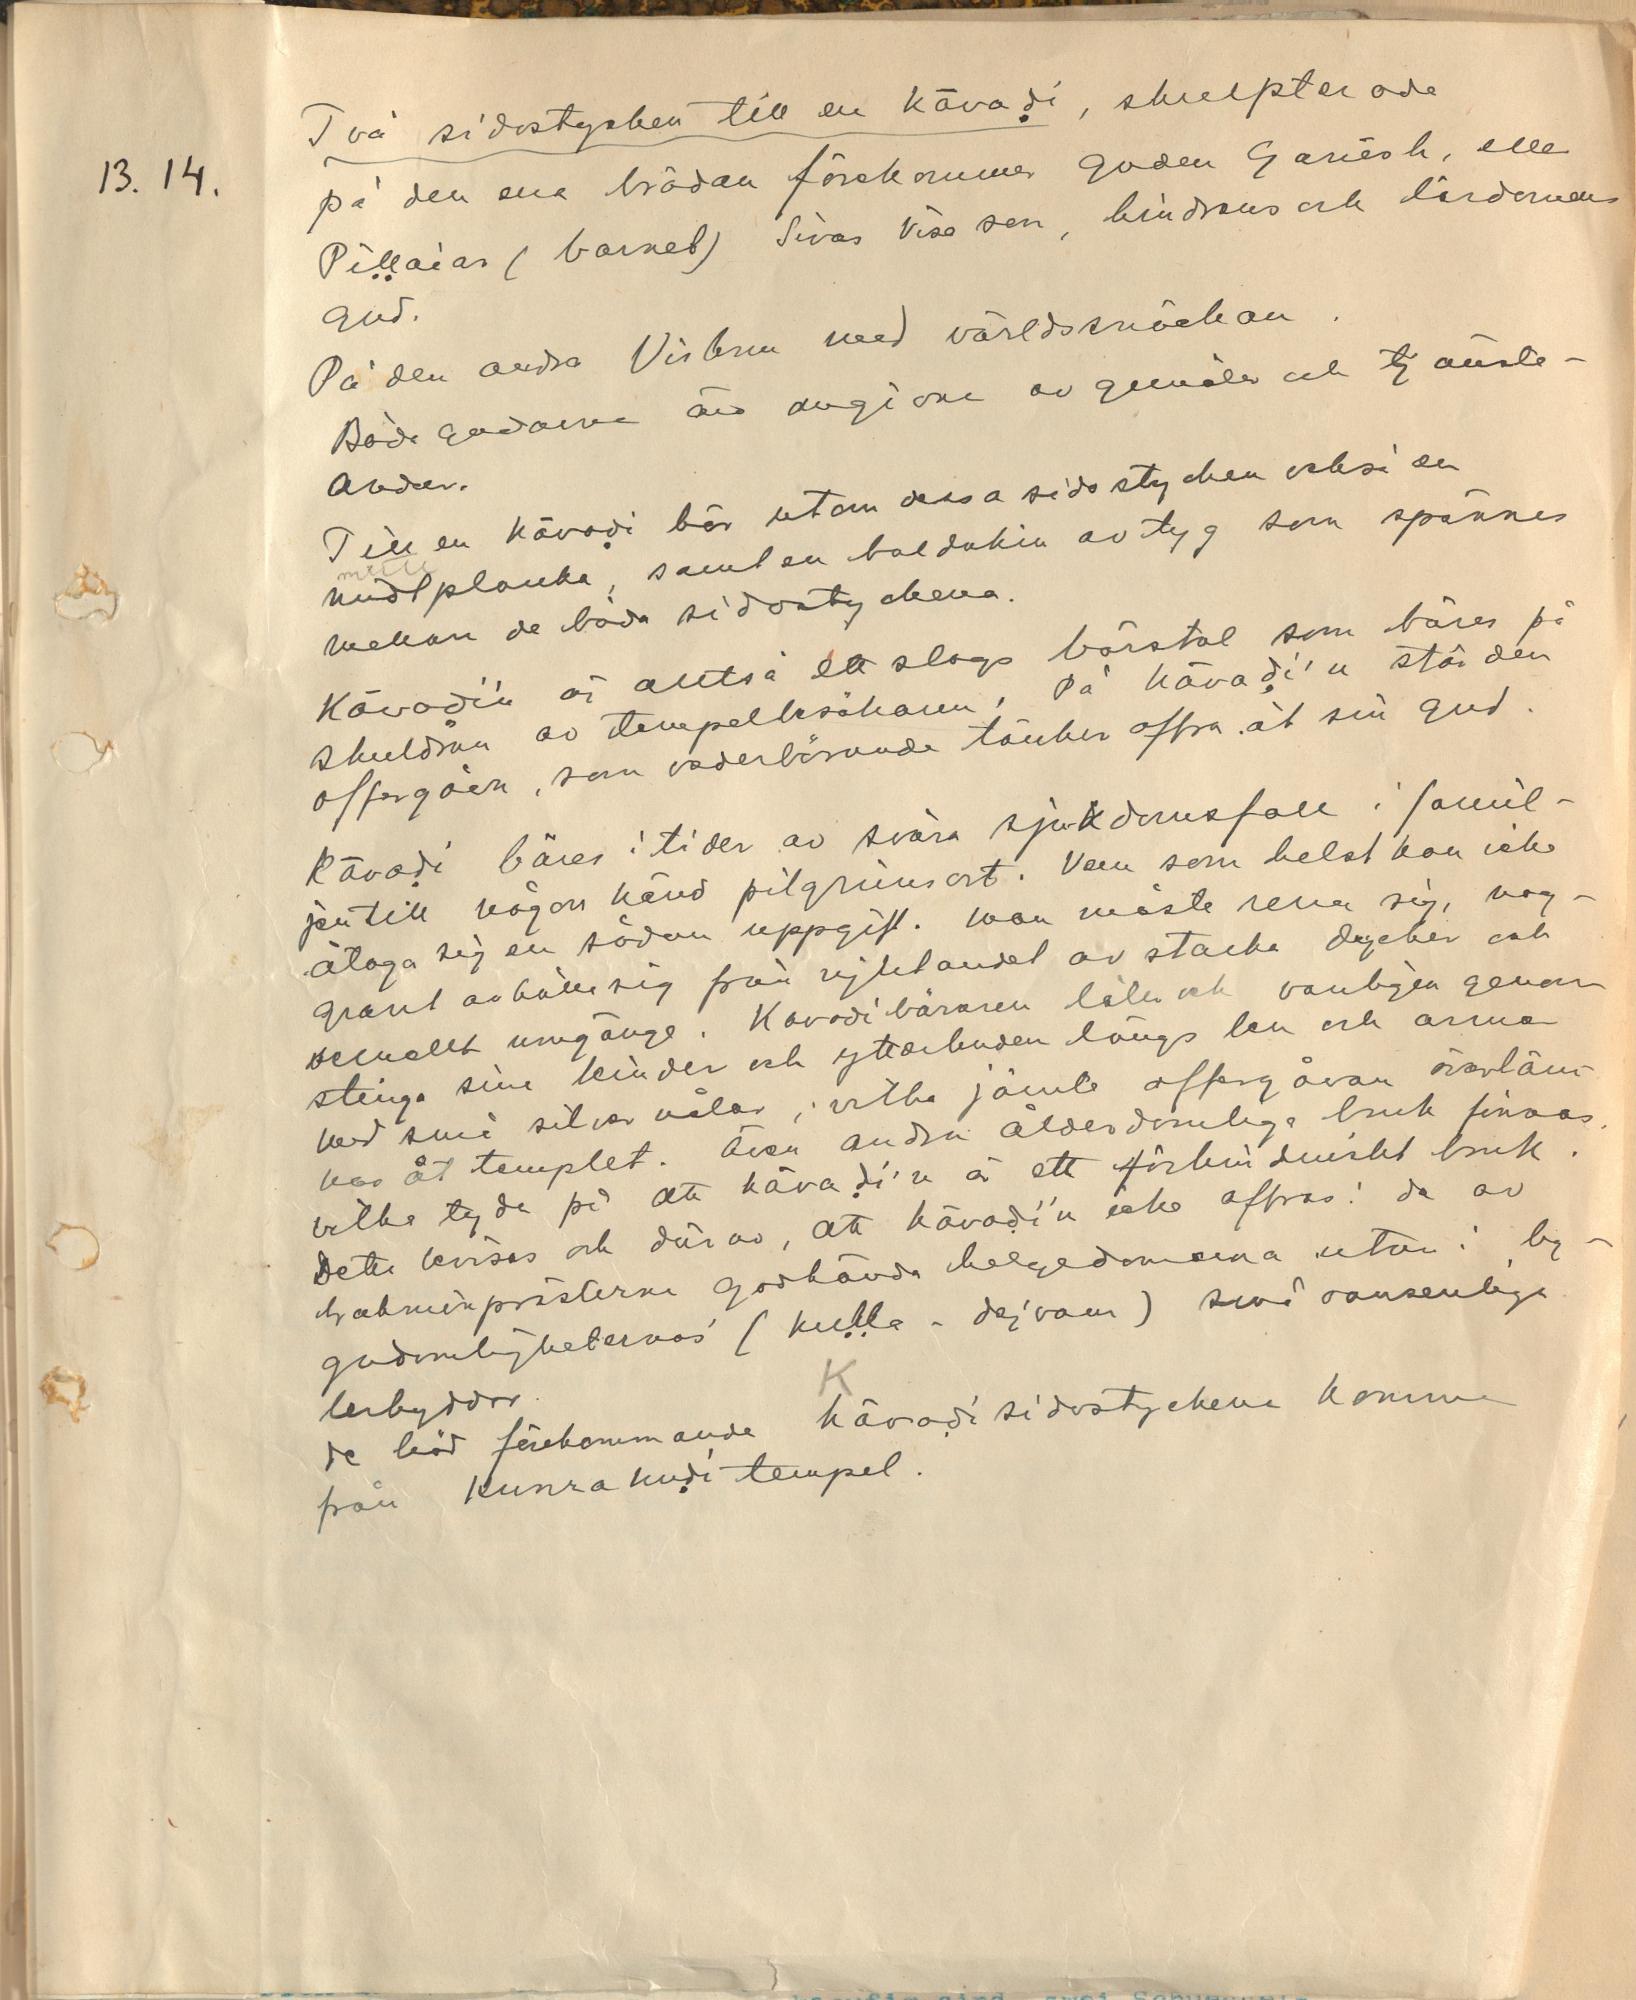 13. 14.
Två sidostycken till en kāvaḍi, skulpterade
på den ena brädan förekommer guden Ganēsh, elle
Piḷḷaiar (barnet) Sivas vise son, hindrens och lärdomens
gud.
På den andra Vishnu med världssnäckan.
Båda gudarna äro omgivna av gemåler och tjänste-
andar.
Till en kāvaḍi hör utom dessa sidostycken också en
mitt
midtplanka, samt en baldakin av tyg som spännes
mellan de båda sidostyckena.
Kāvaḍi'n är alltså ett slags bärstol som bäres på
skuldran av tempelbesökaren, På kāvaḍi'n står den
offergåva, som vederbörande tänker offra åt sin gud.
Kāvaḍi bäres i tider av svåra sjukdomsfall i famil-
jen till någon känd pilgrimsort. Vem som helst kan icke
åtaga sig en sådan uppgift. Man måste rena sig, nog-
grant avhålla sig från njutandet av starka drycker och
sexuellt umgänge. Kavadibäraren låter ock vanligen genom-
stinga sina kinder och ytterhuden längs ben och armar
med små silver nålar, vilka jämte offergåvan överläm-
nas åt templet. Även andra ålderdomliga bruk finnas,
vilka tyda på att kāvaḍi'n är ett förhinduiskt bruk.
Detta bevisas och därav, att kāvaḍi'n icke offras i de av
brahminprästerna godkända helgedomarna utan i by-
gudomligheternas (kuḷḷa-dejvam) små oansenliga
lerhyddor.
K
de här förekommande kāvaḍisidostyckena komma
från Kunrakuḍi tempel.